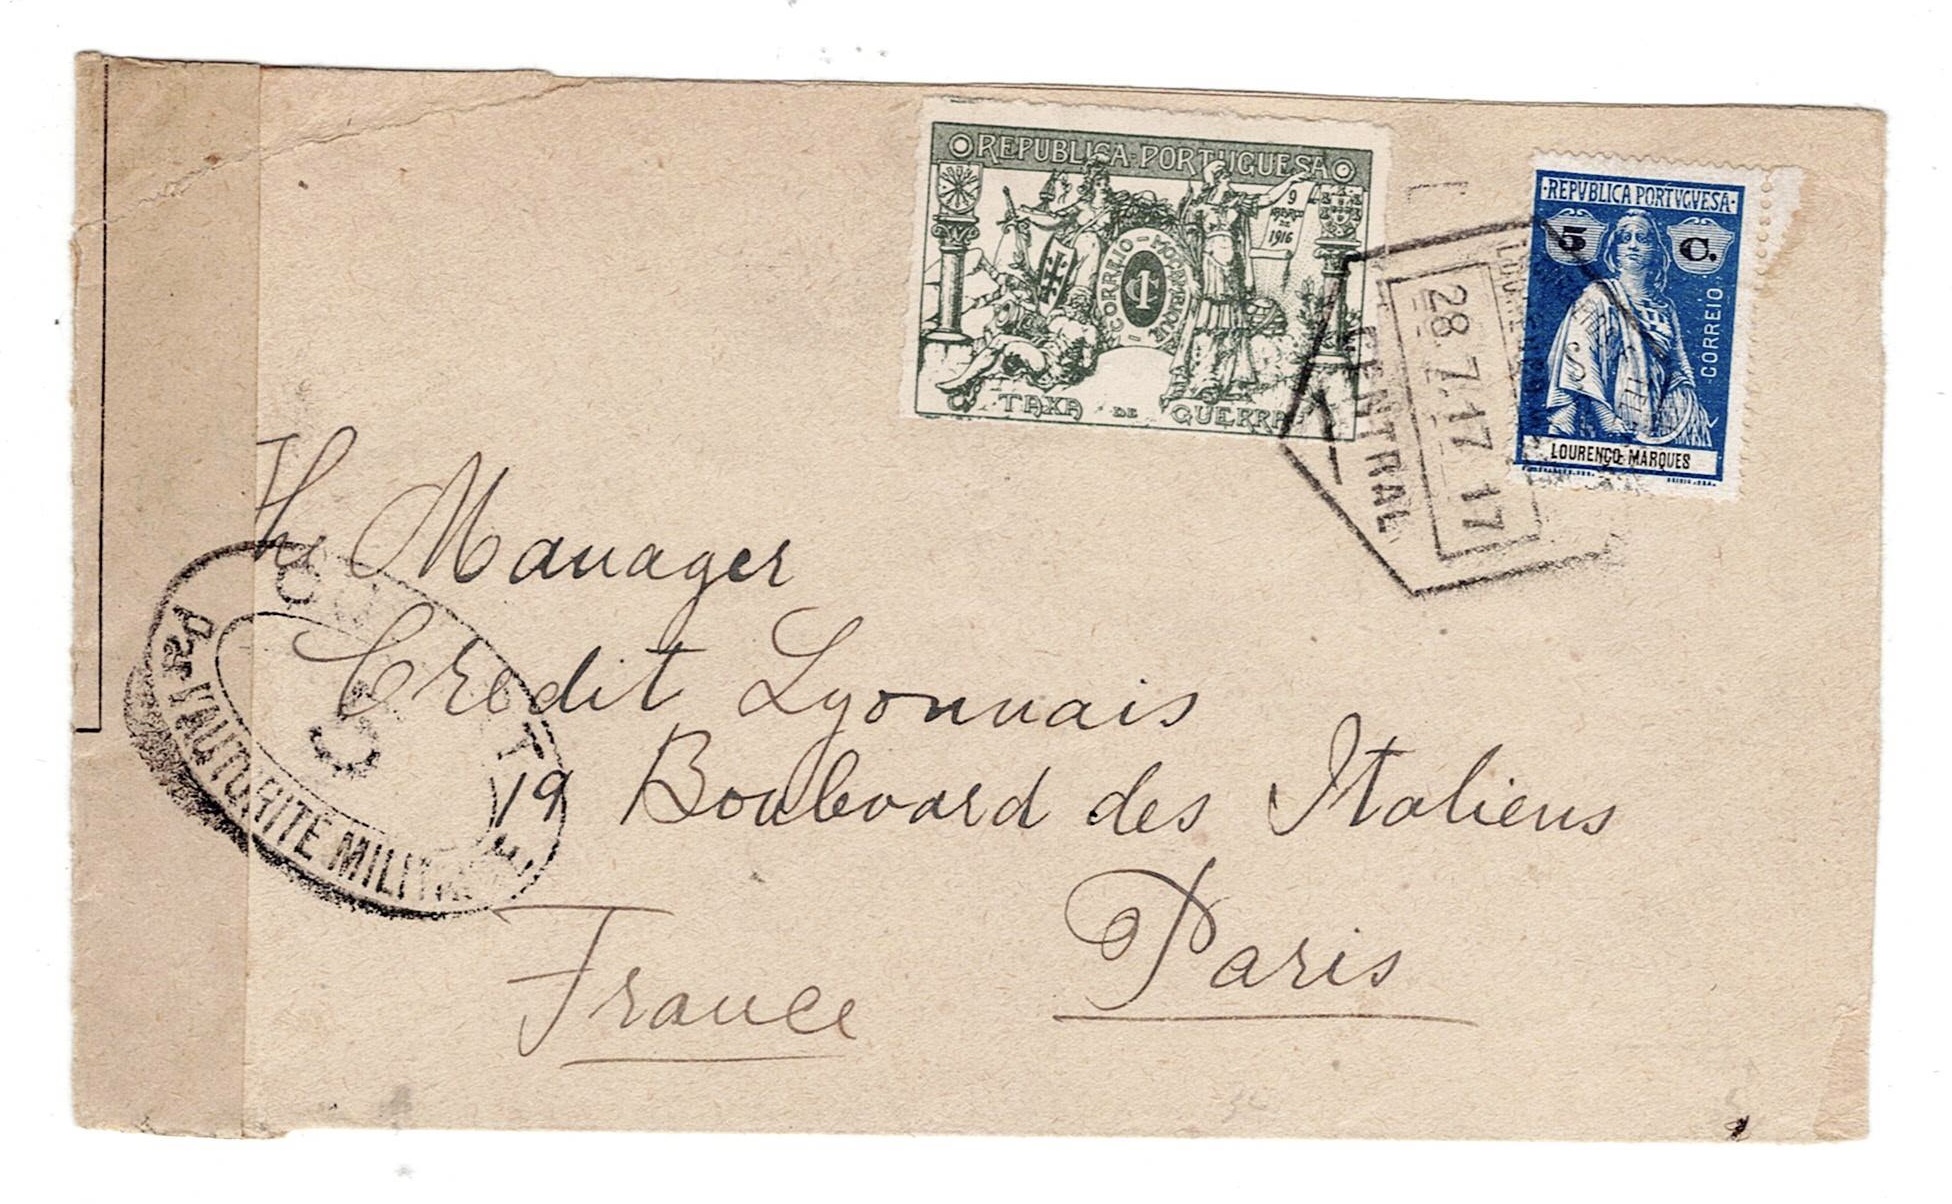 REPUBLICA PORTUGUESA
9
MARÇO
DE
1916
CORREIO - MOÇAMBIQUE -
1 C
TAXA DE GUERRA
REPVBLICA PORTVGVESA
5 C.
CORREIO
LOURENÇO MARQUES
CENTRAL
28.7.17 17
The Manager
Credit Lyonnais
19 Boulevard des Italiens
Paris
France
PAR L'AUTORITÉ MILITAIRE